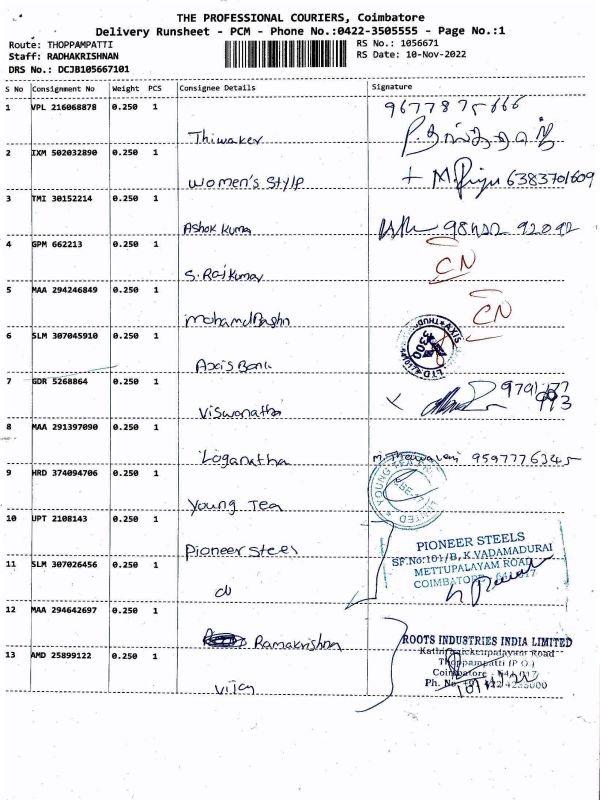 THE PROFESSIONAL COURIERS, Coimbatore
Delivery Runsheet - PCM - Phone No.:0422-3505555 - Page No.:1
Route: THOPPAMPATTI RS No.: 1056671
Staff: RADHAKRISHNAN RS Date: 10-Nov-2022
DRS No.: DCJB105667101
S No Consignment No Weight PCS Consignee Details Signature
1 VPL 216068878 0.250 1 9677875666
Thiwaker
2 IXM 502032890 0.250 1
Women's Style 6383701609
3 TMI 30152214 0.250 1
Ashok Kuma
4 GPM 662213 0.250 1 CN
S. Raj Kumar
5 MAA 294246849 0.250 1 CN
6 SLM 307045910 0.250 1
Axis Bank
7 GDR 5268864 0.250 1
Viswanatha
8 MAA 291397090 0.250 1
Loganatha 9597776345
9 HRD 374094706 0.250 1
Young Tea
10 UPT 2108143 0.250 1
Pioneer Steel
PIONEER STEELS
SF.No:101/B, K.VADAMADURAI
METTUPALAYAM ROAD
COIMBATORE
11 SLM 307026456 0.250 1
do
12 MAA 294642697 0.250 1
Ramakrishna
ROOTS INDUSTRIES INDIA LIMITED
13 AMD 25899122 0.250 1
Thoppampatti (P.O.)
Vijay